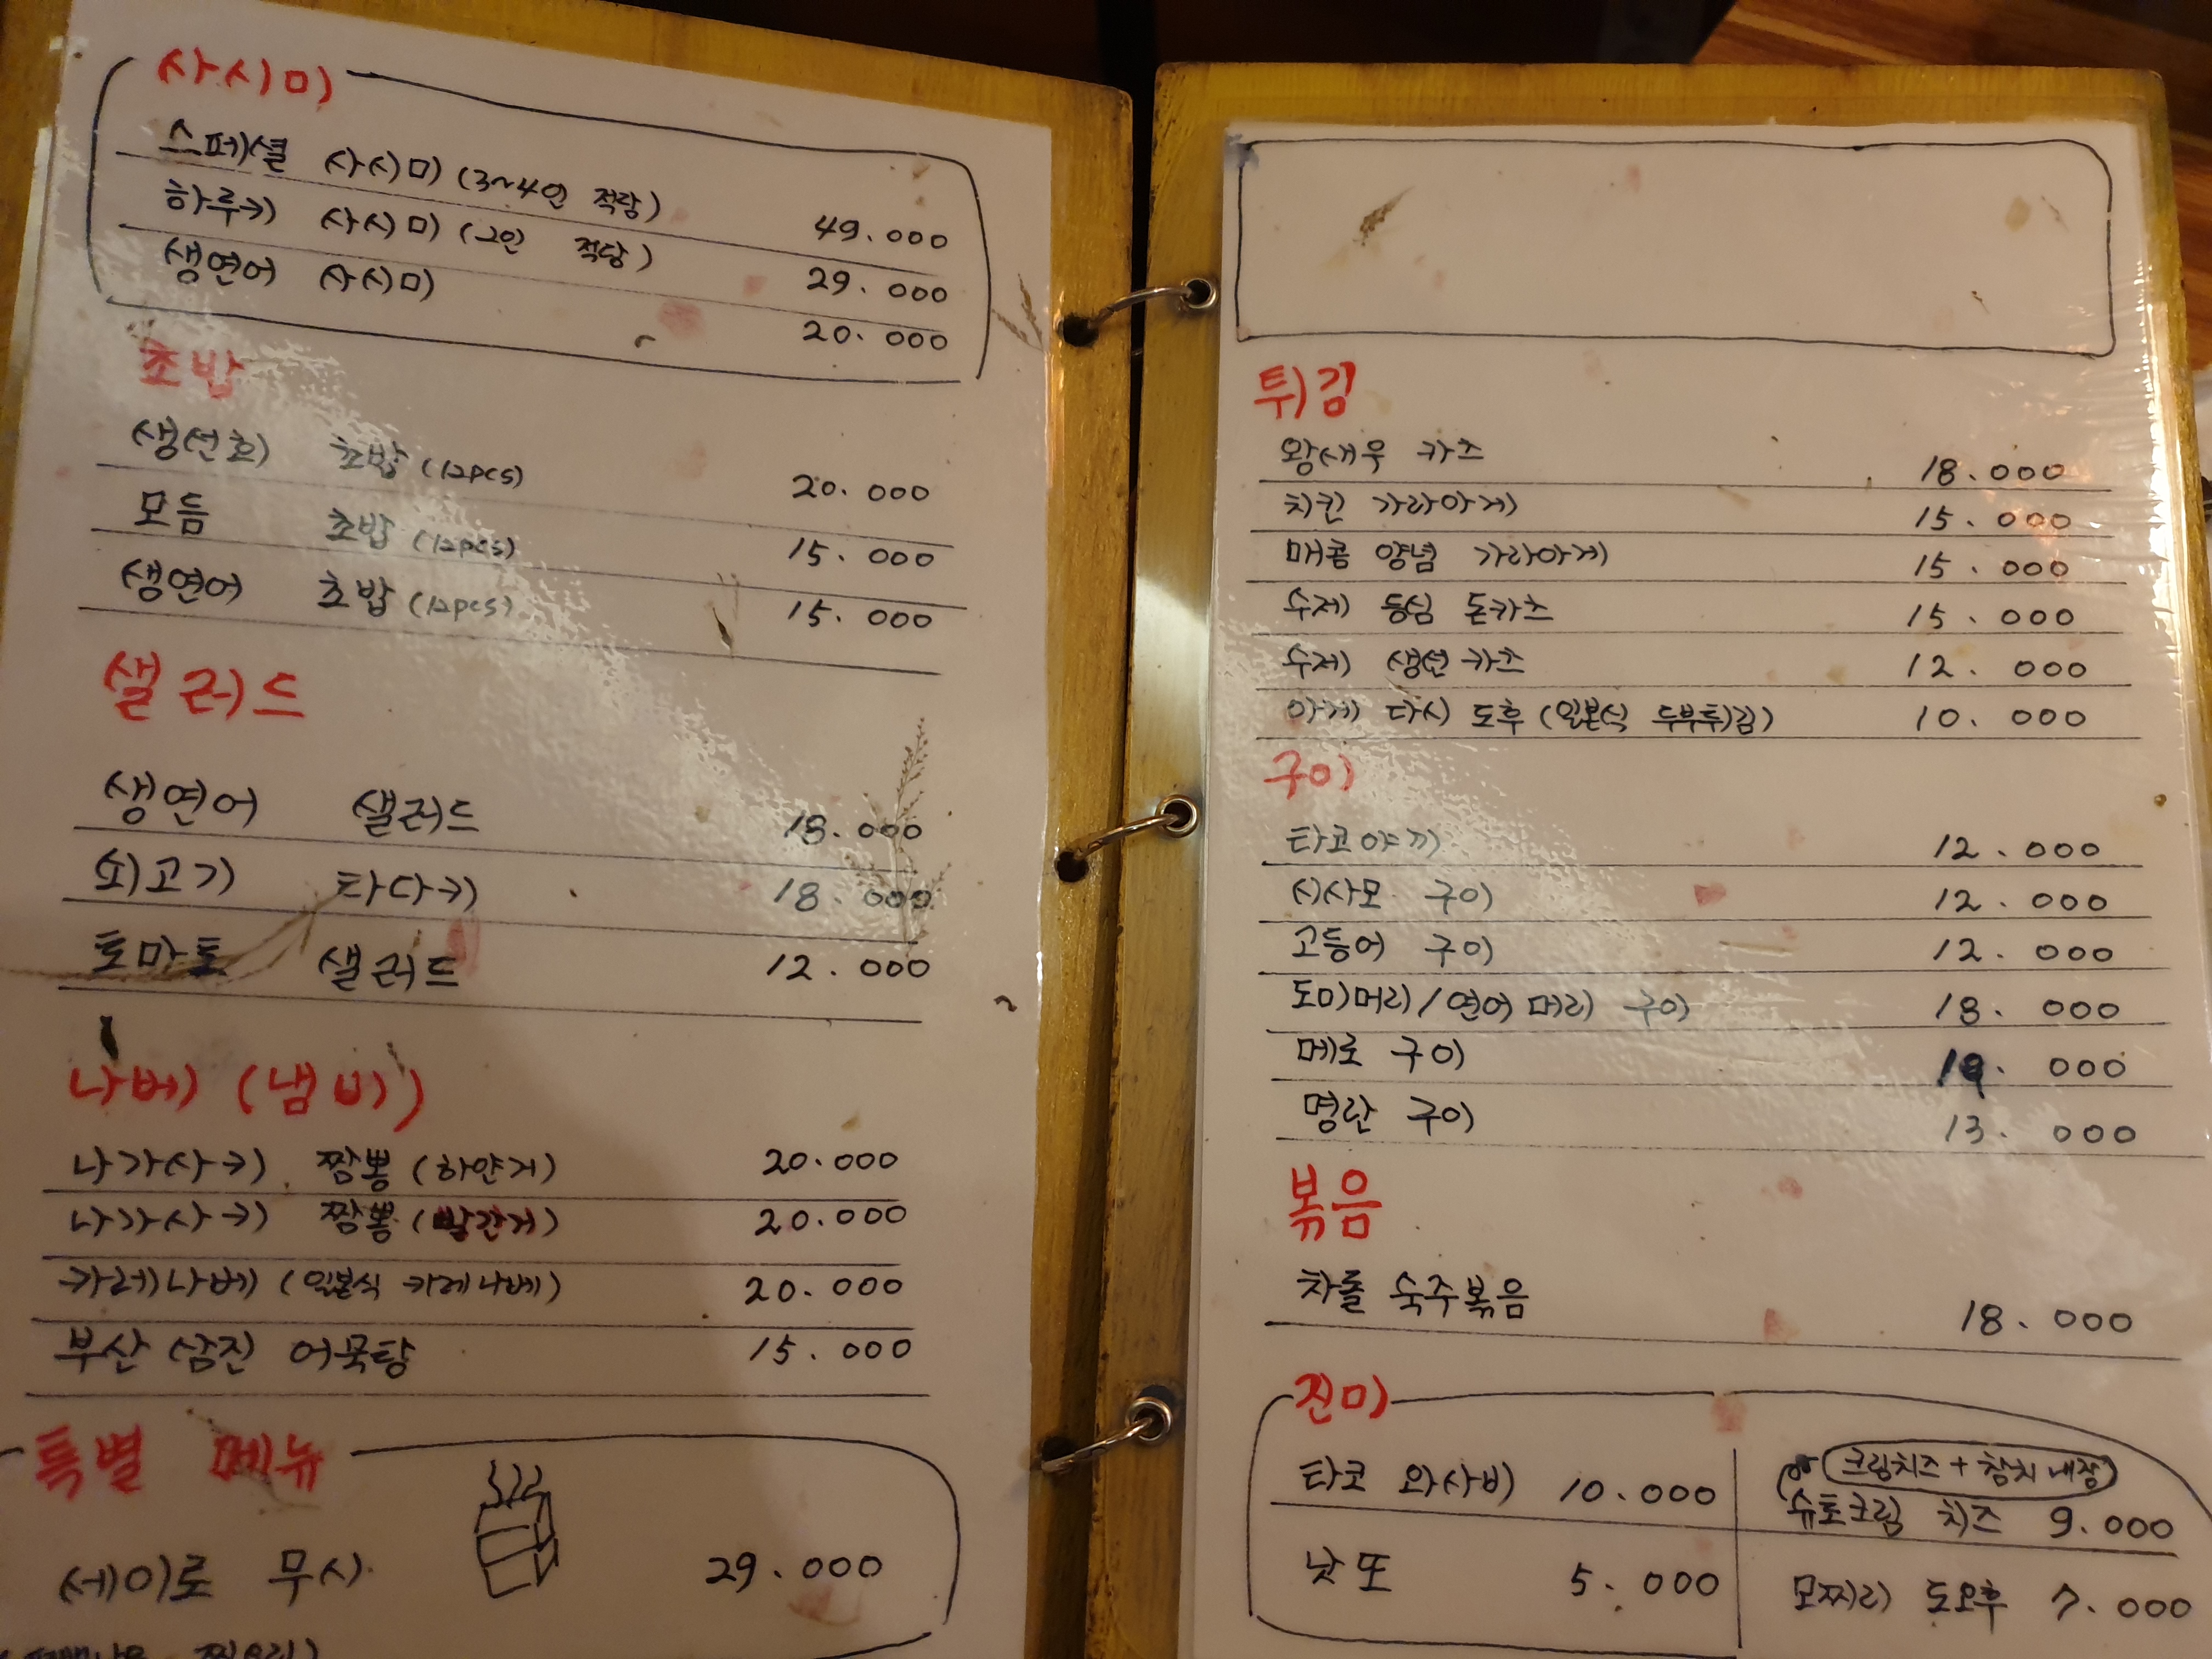 사시미
스페셜 사시미 (3~4인 적량) 49.000
하루키 사시미 (2인 적당) 29.000
생연어 사시미 20.000
초밥
생선회 초밥 (12pcs) 20.000
모듬 초밥 (12pcs) 15.000
생연어 초밥 (12pcs) 15.000
샐러드
생연어 샐러드 18.000
쇠고기 타다키 18.000
토마토 샐러드 12.000
나베 (냄비)
나가사키 짬뽕 (하얀거) 20.000
나가사키 짬뽕 (빨간거) 20.000
카레나베 (일본식 카레나베) 20.000
부산 삼진 어묵탕 15.000
특별 메뉴
세이로 무시 29.000
튀김
왕새우 카츠 18.000
치킨 가라아게 15.000
매콤 양념 가라아게 15.000
수제 등심 돈카츠 15.000
수제 생선카츠 12.000
아게 다시 도후 (일본식 두부튀김) 10.000
구이
타코야끼 12.000
시사모 구이 12.000
고등어 구이 12.000
도미머리/연어머리 구이 18.000
메로 구이 000
명란 구이 13.000
볶음
차돌 숙주볶음 18.000
진미
타코 와사비 10.000
크림치즈 + 참치 내장
슈토크림 치즈 9.000
낫또 5.000
모찌리 도오후 7.000